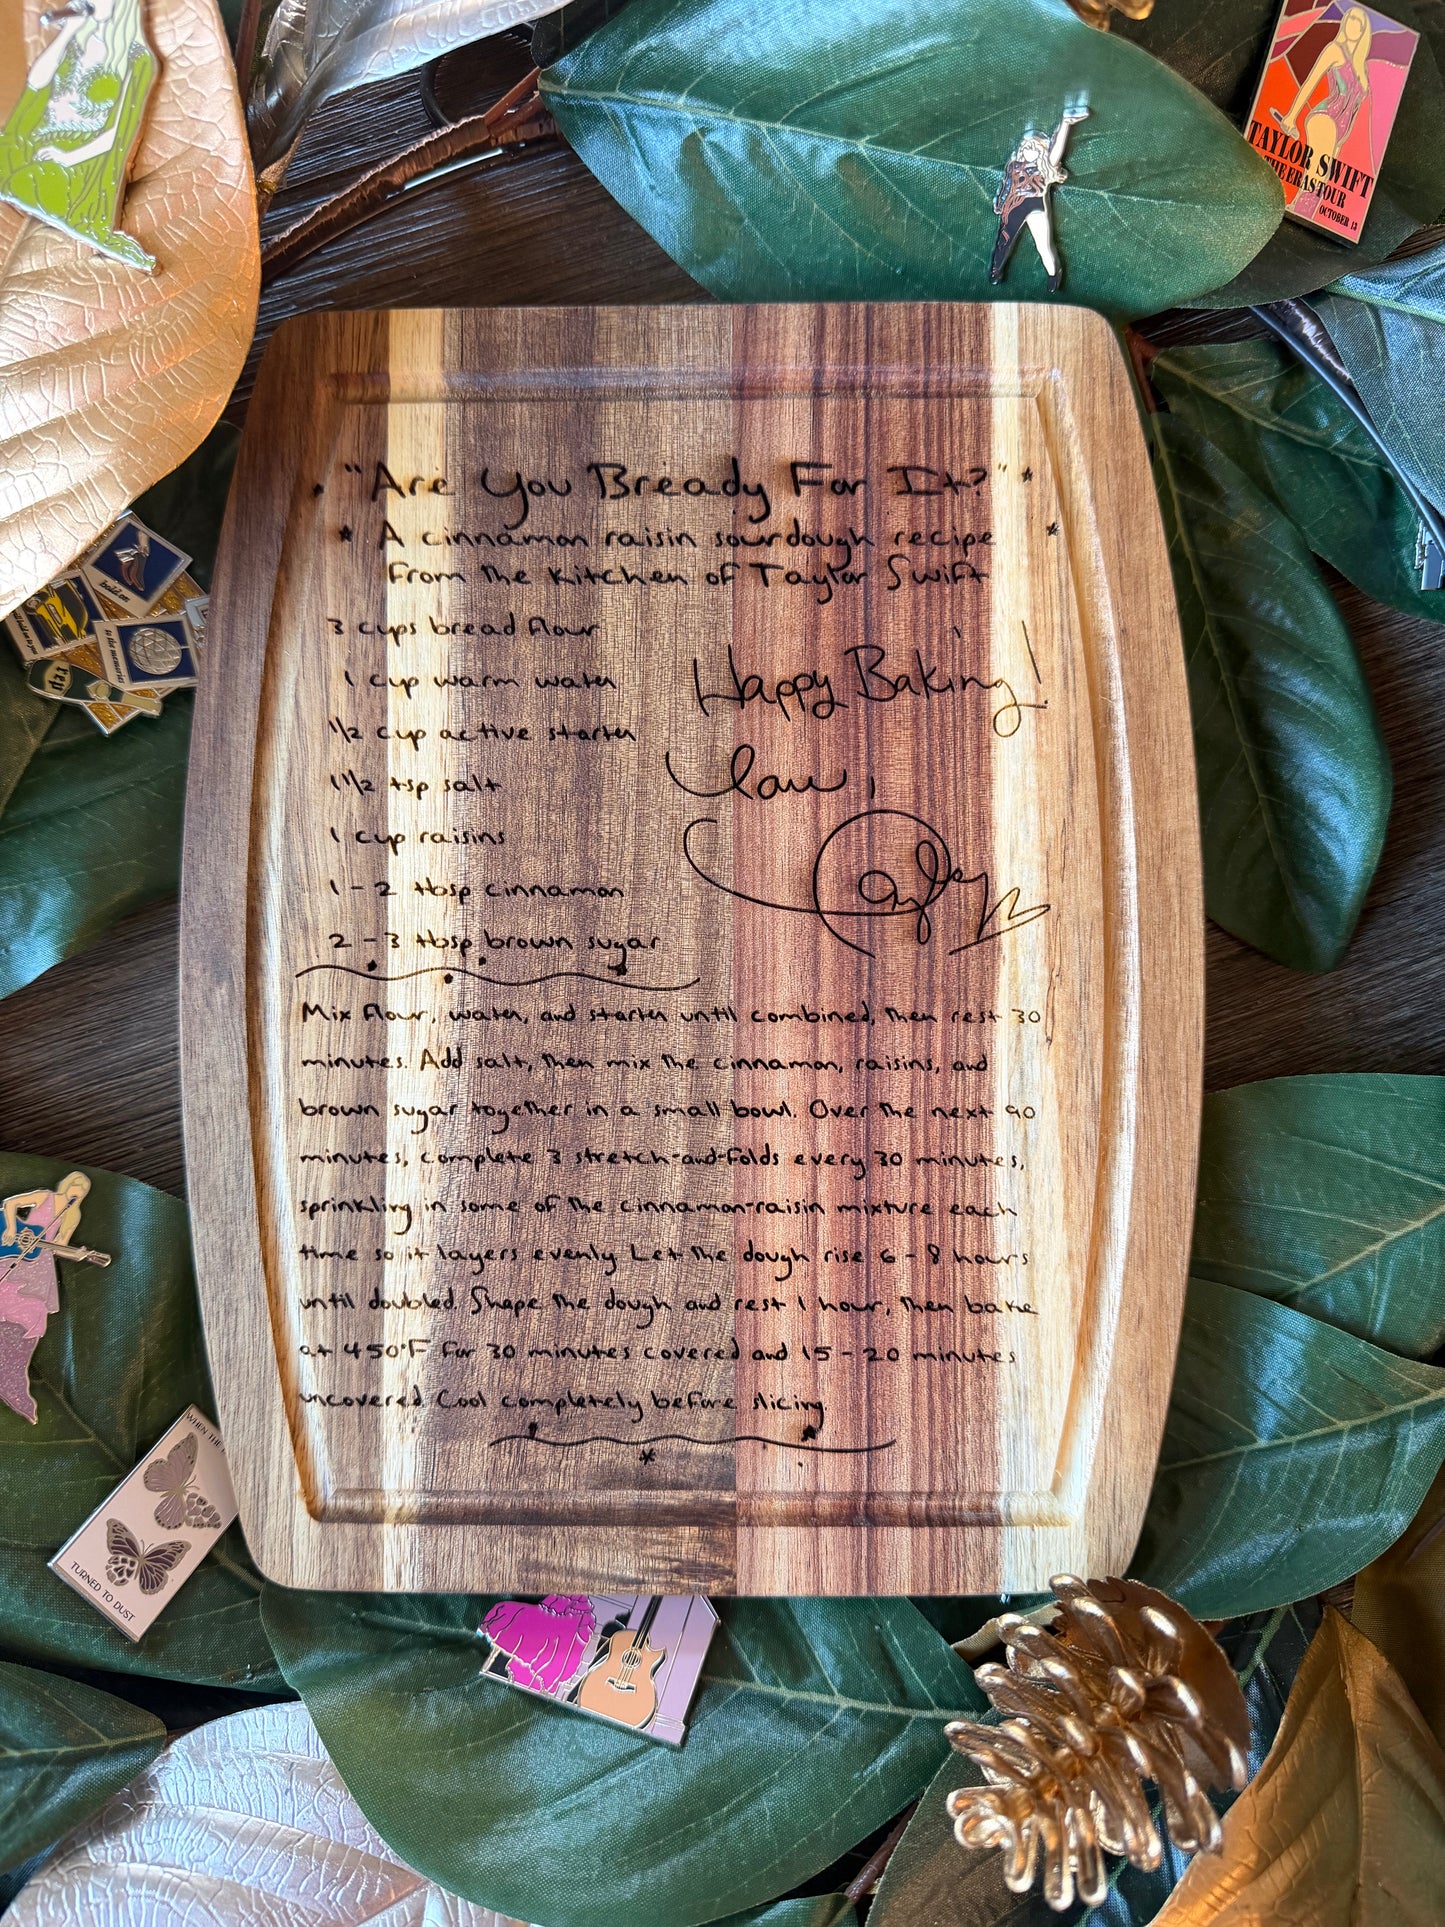 "Are You Bready For It?"
A cinnamon raisin sourdough recipe
from the kitchen of Taylor Swift
3 cups bread flour
1 cup warm water
1/2 cup active starter
1 1/2 tsp salt
1 cup raisins
1-2 tbsp cinnamon
2-3 tbsp brown sugar
Happy Baking!
Love,
Taylor
Mix flour, water, and starter until combined, then rest 30
minutes. Add salt, then mix the cinnamon, raisins, and
brown sugar together in a small bowl. Over the next 90
minutes, complete 3 stretch-and-folds every 30 minutes,
sprinkling in some of the cinnamon-raisin mixture each
time so it layers evenly. Let the dough rise 6-8 hours
until doubled. Shape the dough and rest 1 hour, then bake
at 450°F for 30 minutes covered and 15-20 minutes
uncovered. Cool completely before slicing.
TAYLOR SWIFT
THE ERAS TOUR
OCTOBER 13
hold on
to the memories
rep
WHEN THE
TURNED TO DUST